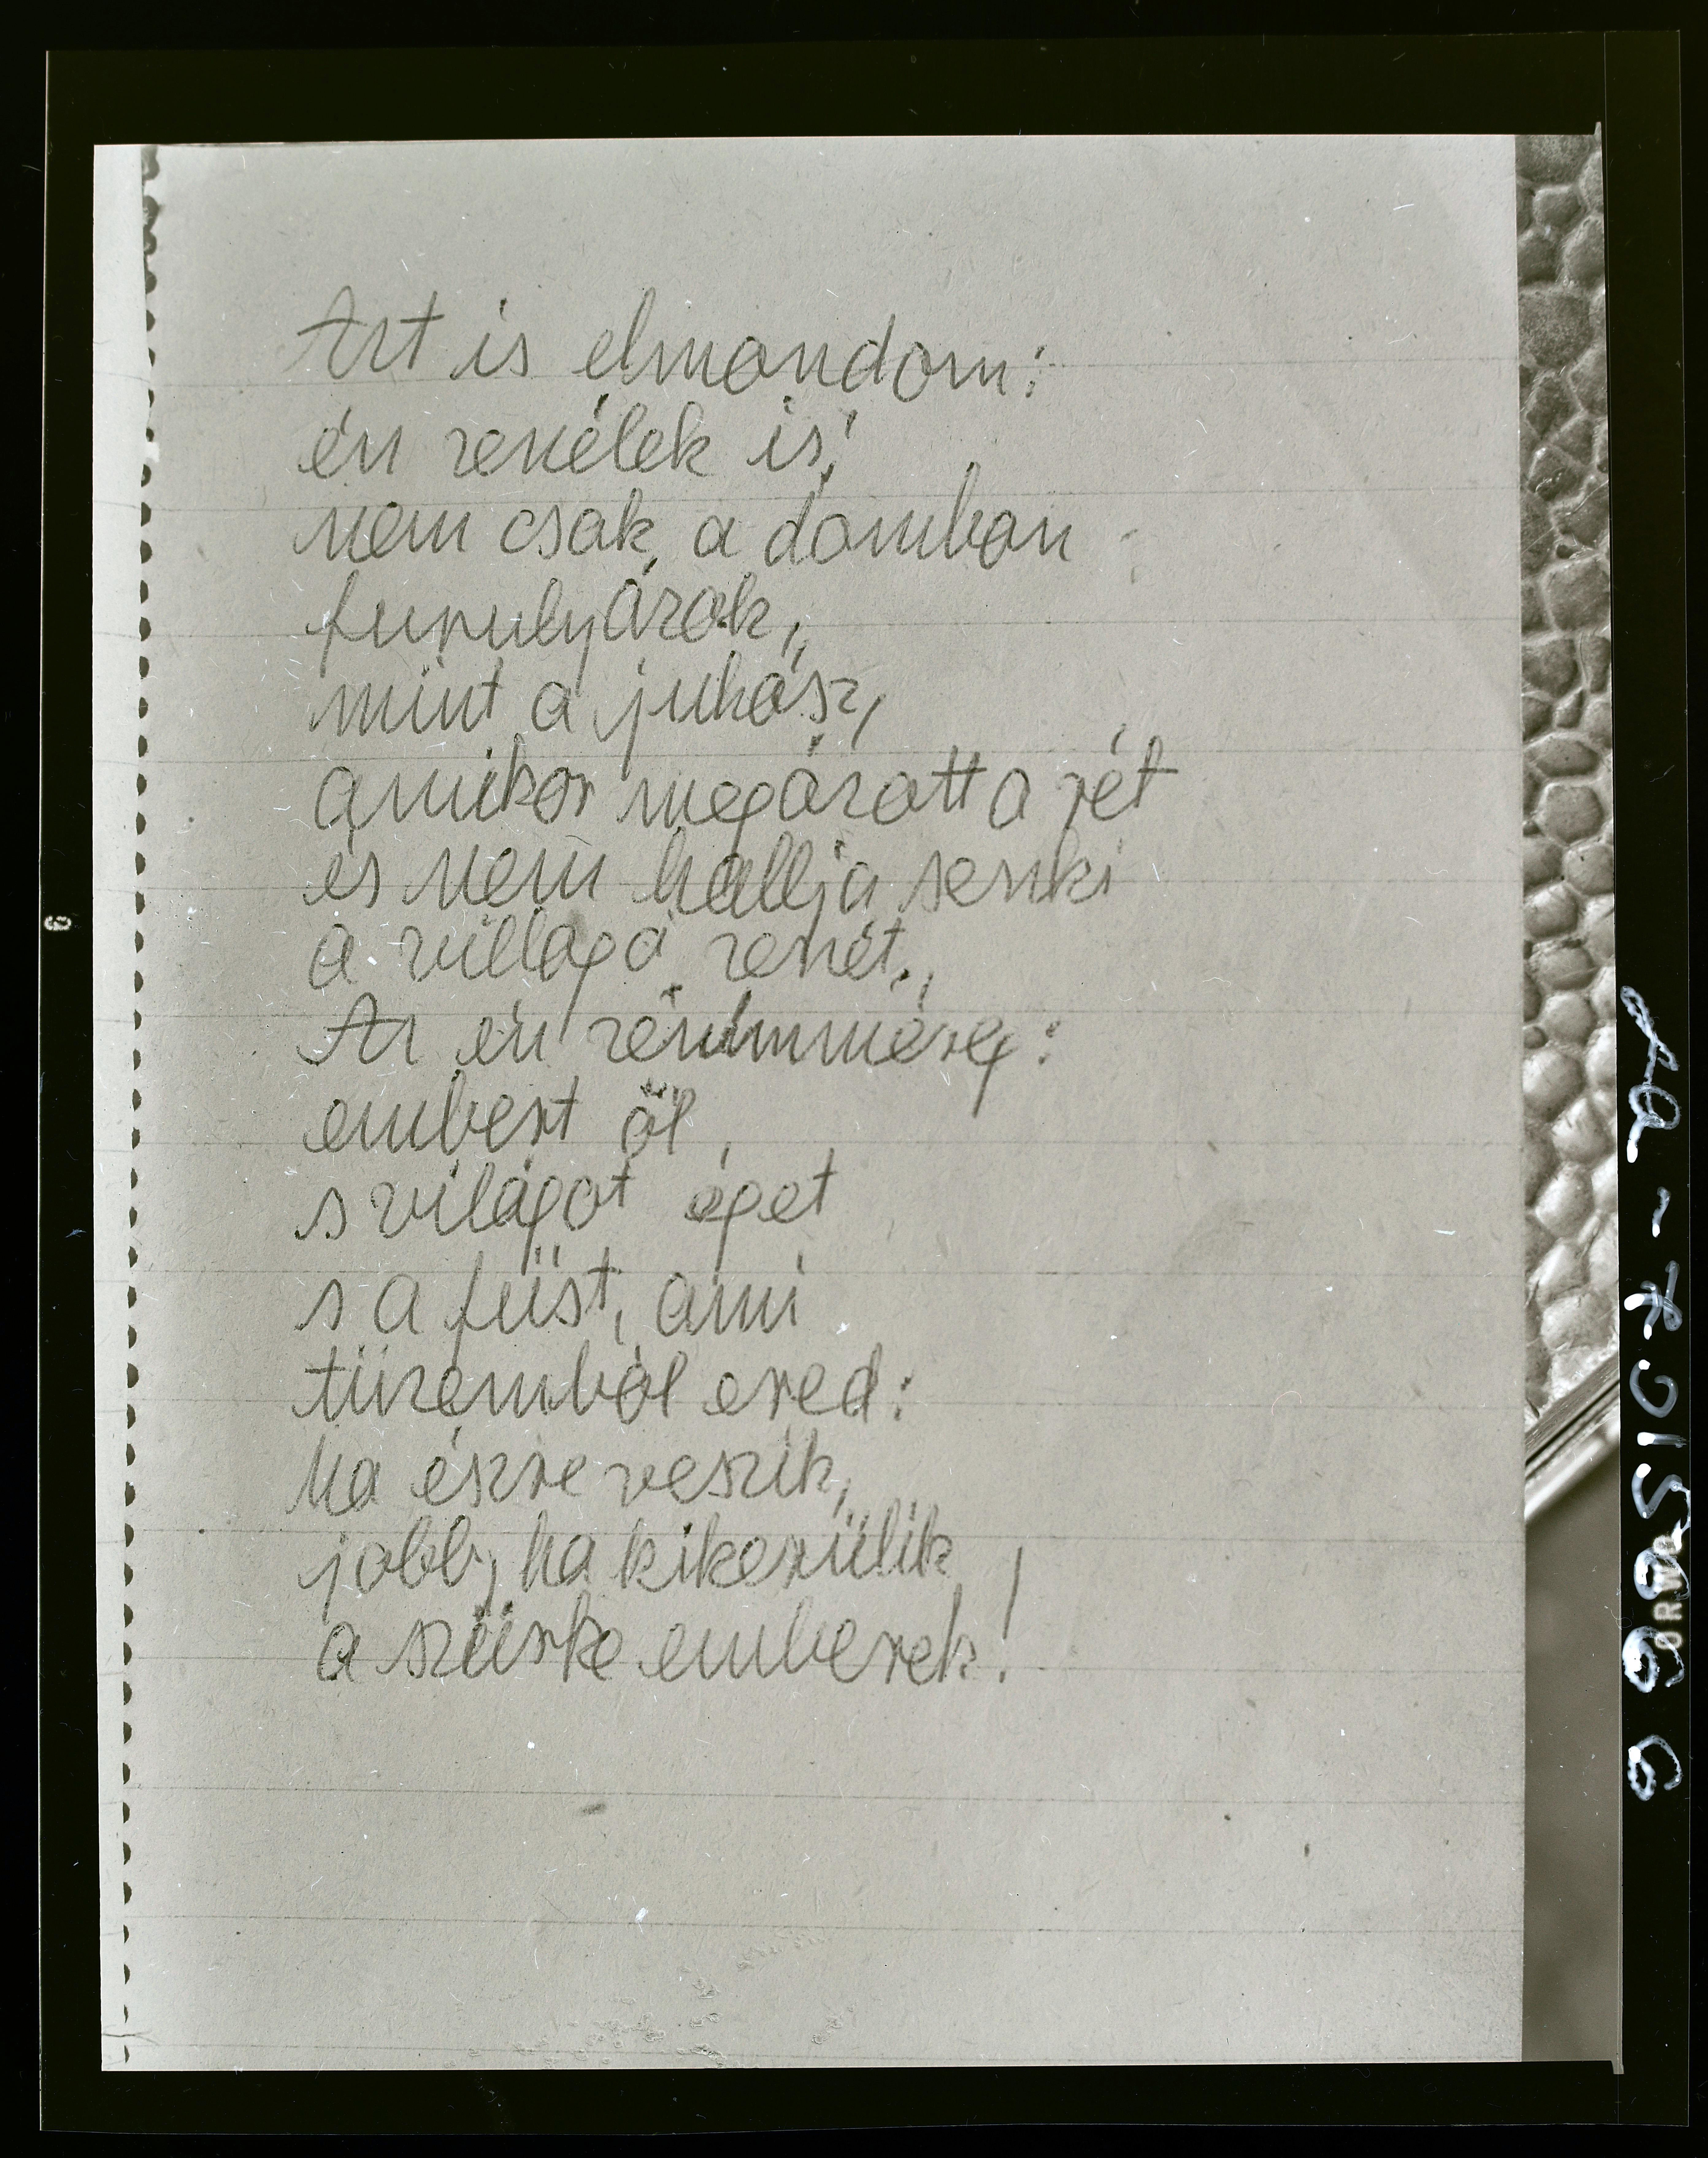 Azt is elmondom:
én zenélek is,
nem csak a dombon
furulyázok,
mint a juhász,
amikor megázott a rét
és nem hallja senki
a villágá zenét.,
Az én zeném méreg:
embert öl,
s világot éget
s a füst, ami
tüzemböl ered:
ha észre veszik,
jobb, ha kikerülik
a szürke emberek!
6